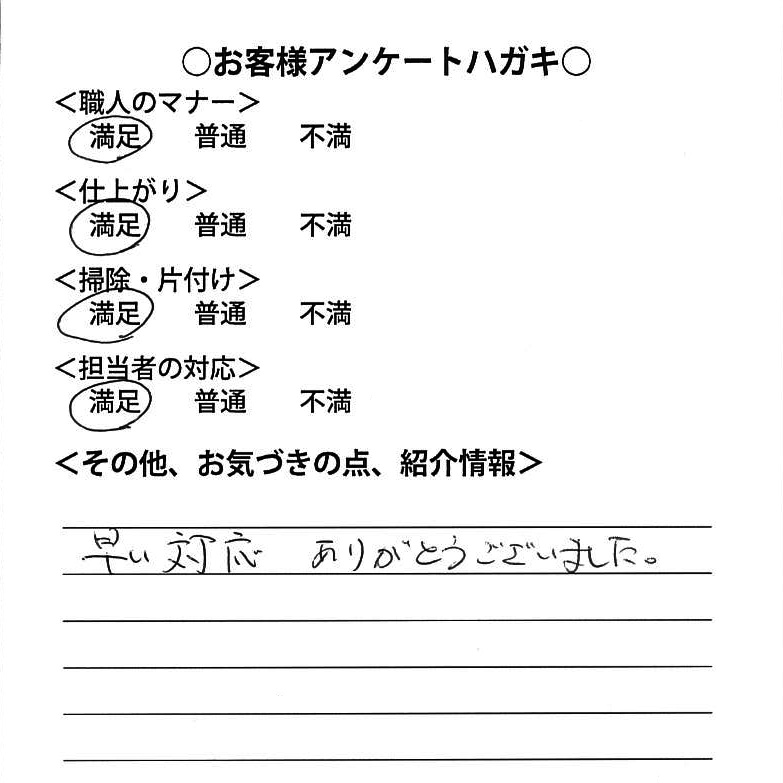 ○お客様アンケートハガキ○
＜職人のマナー＞
満足 普通 不満
＜仕上がり＞
満足 普通 不満
＜掃除・片付け＞
満足 普通 不満
＜担当者の対応＞
満足 普通 不満
＜その他、お気づきの点、紹介情報＞
早い対応 ありがとうございました。